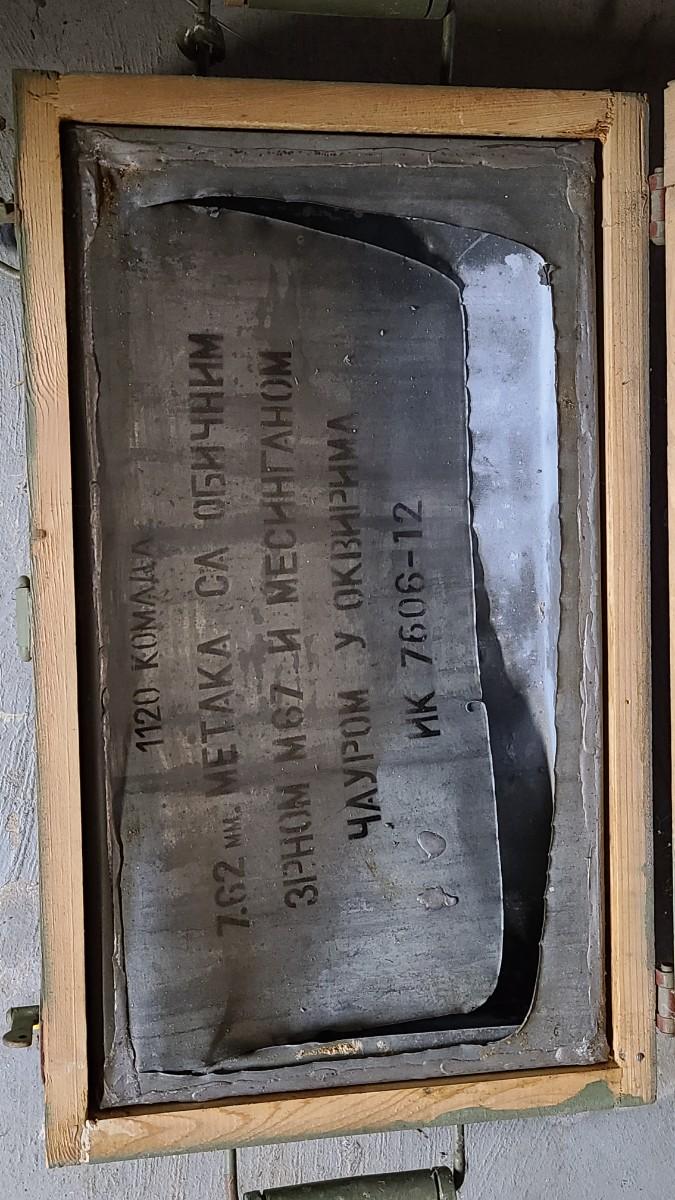 1120 КОМАДА
7.62 мм. МЕТАКА СА ОБИЧНИМ
ЗРНОМ М67 И МЕСИНГАНОМ
ЧАУРОМ У ОКВИРИМА
ИК 7606-12